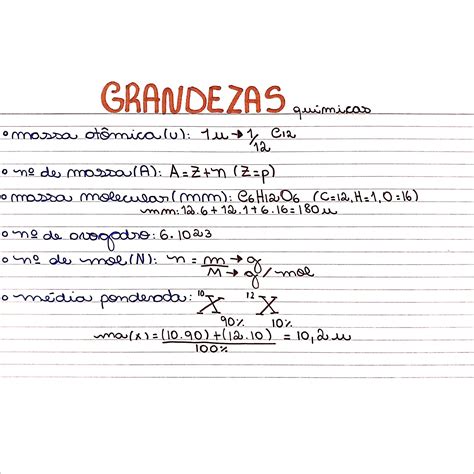 GRANDEZAS químicas
• massa atômica (u): 1u → 1/12 C12
• nº de massa (A): A = Z + n (Z = p)
• massa molecular (mm): C6H12O6 (C=12, H=1, O=16)
mm: 12.6 + 12.1 + 6.16 = 180u
• nº de avogadro: 6.1023
• nº de mol (N): n = m → g
M → g/mol
• média ponderada: ¹⁰X ¹²X
90% 10%
ma(x) = (10.90) + (12.10) = 10,2u
100%